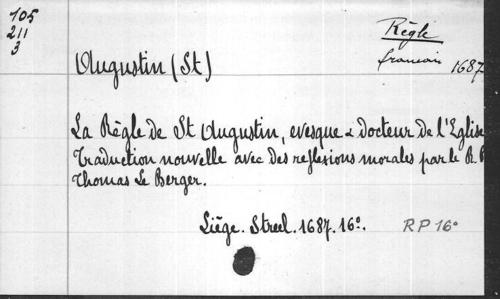 105
211
3
Règle
français 1687
Augustin (St)
La Règle de St Augustin, evesque & docteur de l'Eglise
Traduction nouvelle avec des reflexions morales par le R. P
Thomas Le Berger.
Liége. Streel. 1687. 16º. RP 16º